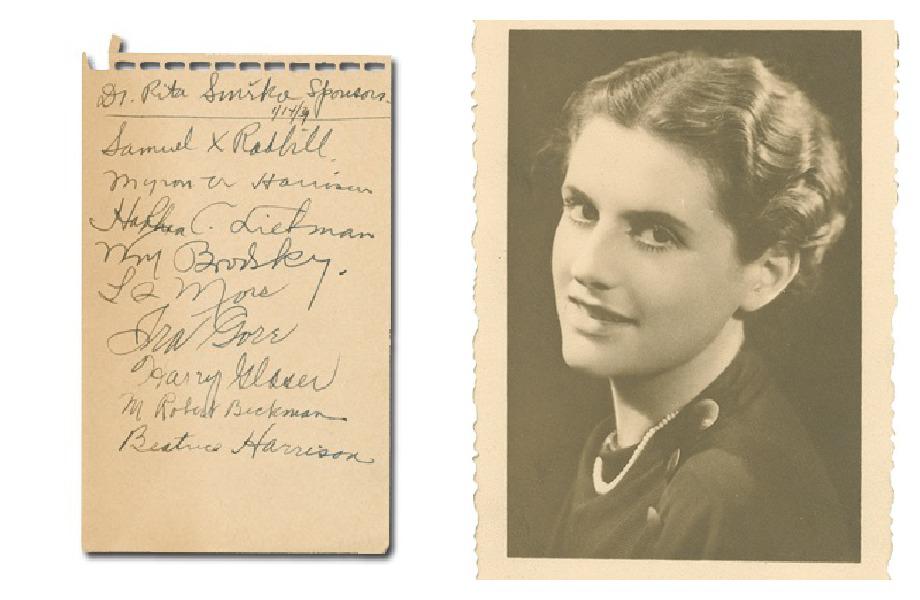 Dr. Rita Smrčka Sponsors.
Samuel X Radbill
Myron Harrison
C. Lietman
Wm Brodsky.
More
Ira Gore
Harry Glaser
M Robert Beckman
Beatrice Harrison